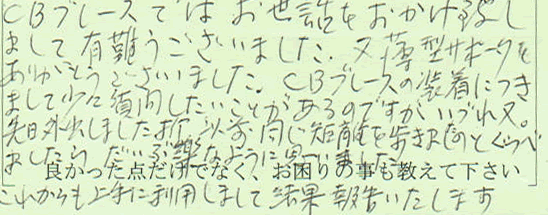 CBブレースではお世話をおかけ致し
まして有難うございました。又薄型サポータを
ありがとうございました。CBブレースの装着につき
まして少々質問したいことがあるのですがいづれ又。
先日外出しました折、以前同じ距離を歩きました時とくらべ
ましたら、だいぶ楽なように思いました。
良かった点だけでなく、お困りの事も教えて下さい
これからも上手に利用しまして結果報告いたします